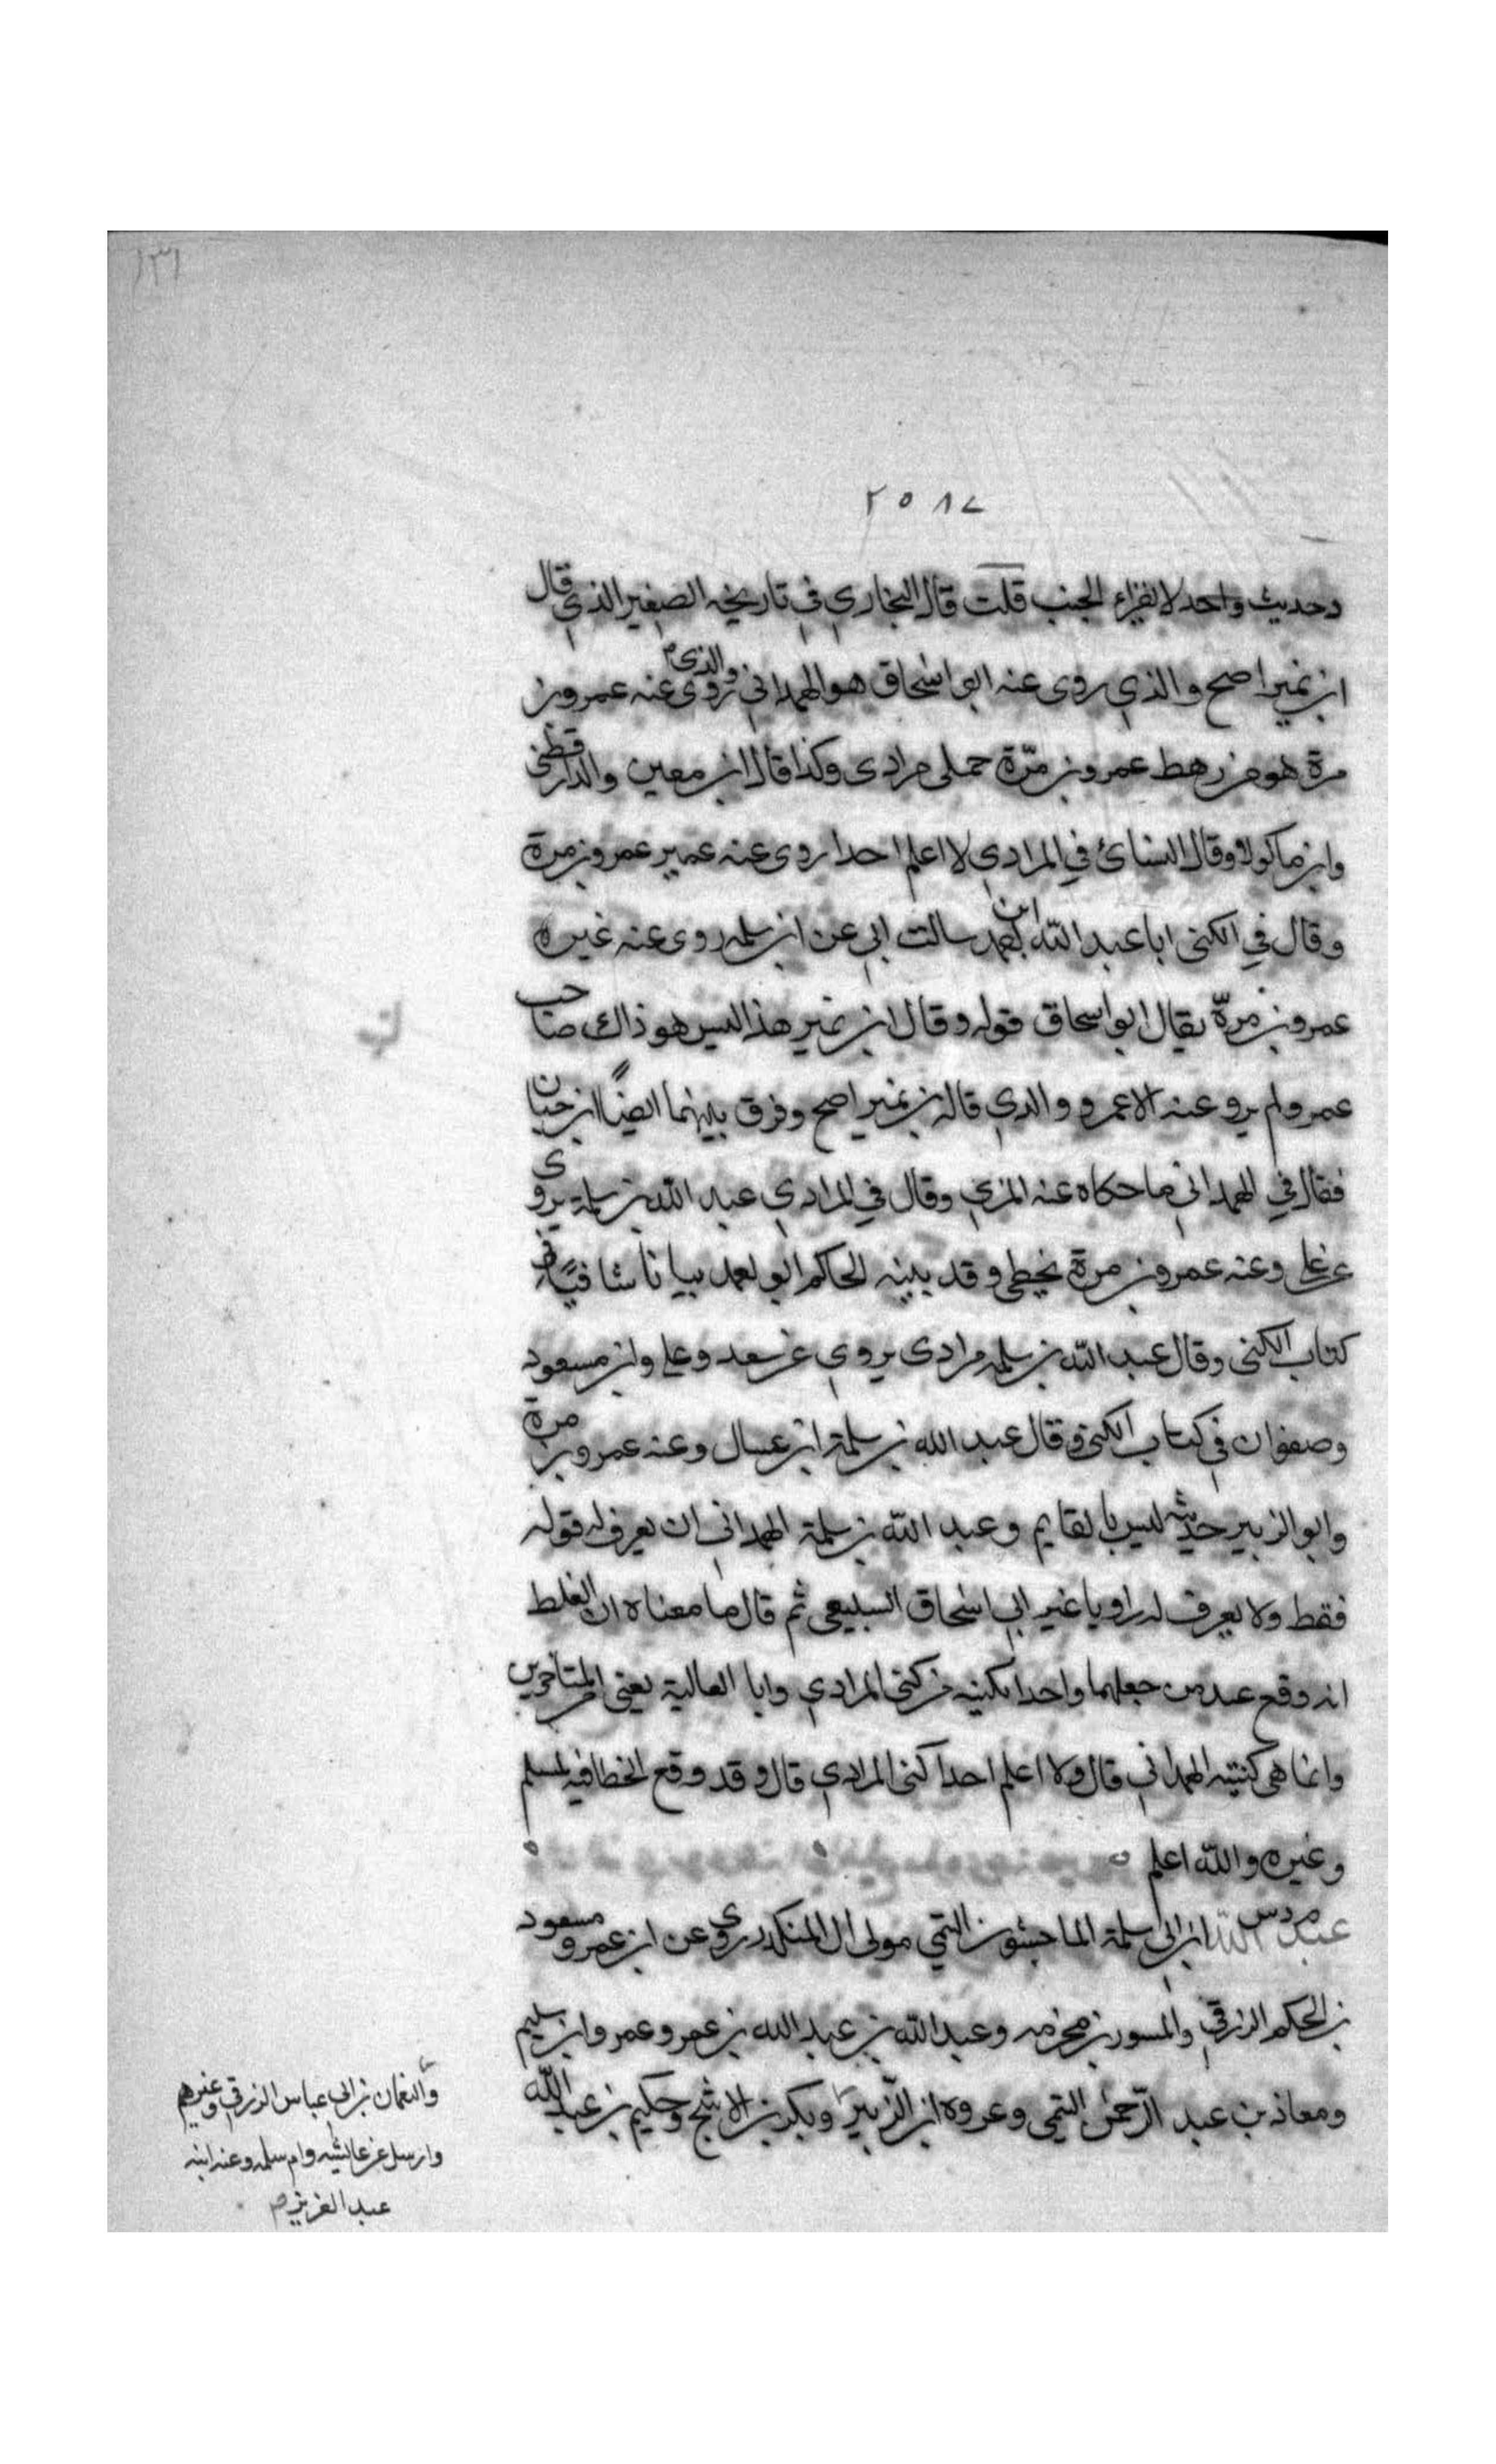 ١٣١
٢٥٨٧
وحديث واحد لا يقراء الجنب قلت قال البخاري في تاريخه الصغير الذي قال
ابن نمير اصح والذي روى عنه ابو اسحاق هو الهمداني والذي روى عنه عمرو بن
مرة هو من رهط عمرو بن مرّة جملي مرادى وكذا قال ابن معين والدارقطني
وابن ماكولا وقال النسائ في المرادي لا اعلم احدا روى عنه غير عمرو بن مرة
وقال في الكنى ابا عبد الله ابن سالت ابي عن ابن سلمه روى عنه غيره
عمرو بن مرّة يقال ابو اسحاق قوله وقال ابن نمير هذا ليس هو ذاك صاحب
عمرو ولم يرو عنه الا عمرو والذي قاله بن نمير اصح وفرق بينهما ايضًا ابن حبان
فقال في الهمداني ما حكاه عنه المزي وقال في المرادي عبد الله بن سلمة يروى
عن علي وعنه عمرو بن مرة يخطي وقد بينه الحاكم ابو احمد بيانا شافيًا في
كتاب الكنى وقال عبد الله بن سلمه مرادى يروي عن سعد وعلي وابن مسعود
وصفوان في كتاب الكنى وقال عبد الله بن سلمة ابن عسال وعنه عمرو بن مرة
وابو الزبير حديثه ليس بالقايم وعبد الله بن سلمة الهمداني ان يعرف له قوله
فقط ولا يعرف له راويا غير ابي اسحاق السبيعي ثم قال ما معناه ان الغلط
انه وقع عند من جعلهما واحدا بكنيه من كنى المرادي وابا العالية يعنى المتاخرين
وانما هي كنيته الهمداني قال ولا اعلم احدا كنى المرادي قال وقد وقع الخطا فيه لمسلم
وغيره والله اعلم
عبد الله ابن ابي سلمة الماجشون التيمي مولى ال المنكدر روى عن ابن عمرو مسعود
بن الحكم الزرقي والمسور بن مخرمه وعبد الله بن عبد الله بن عمرو وعمرو ابن سليم
ومعاذ بن عبد الرّحمن التيمي وعروه ابن الزّبير وبكر بن الاشج وحكيم بن عبد الله
والنعمان بن ابي عباس الزرقي وغيرهم
وارسل عن عائشه وام سلمه وعنه ابنه
عبد العزيز